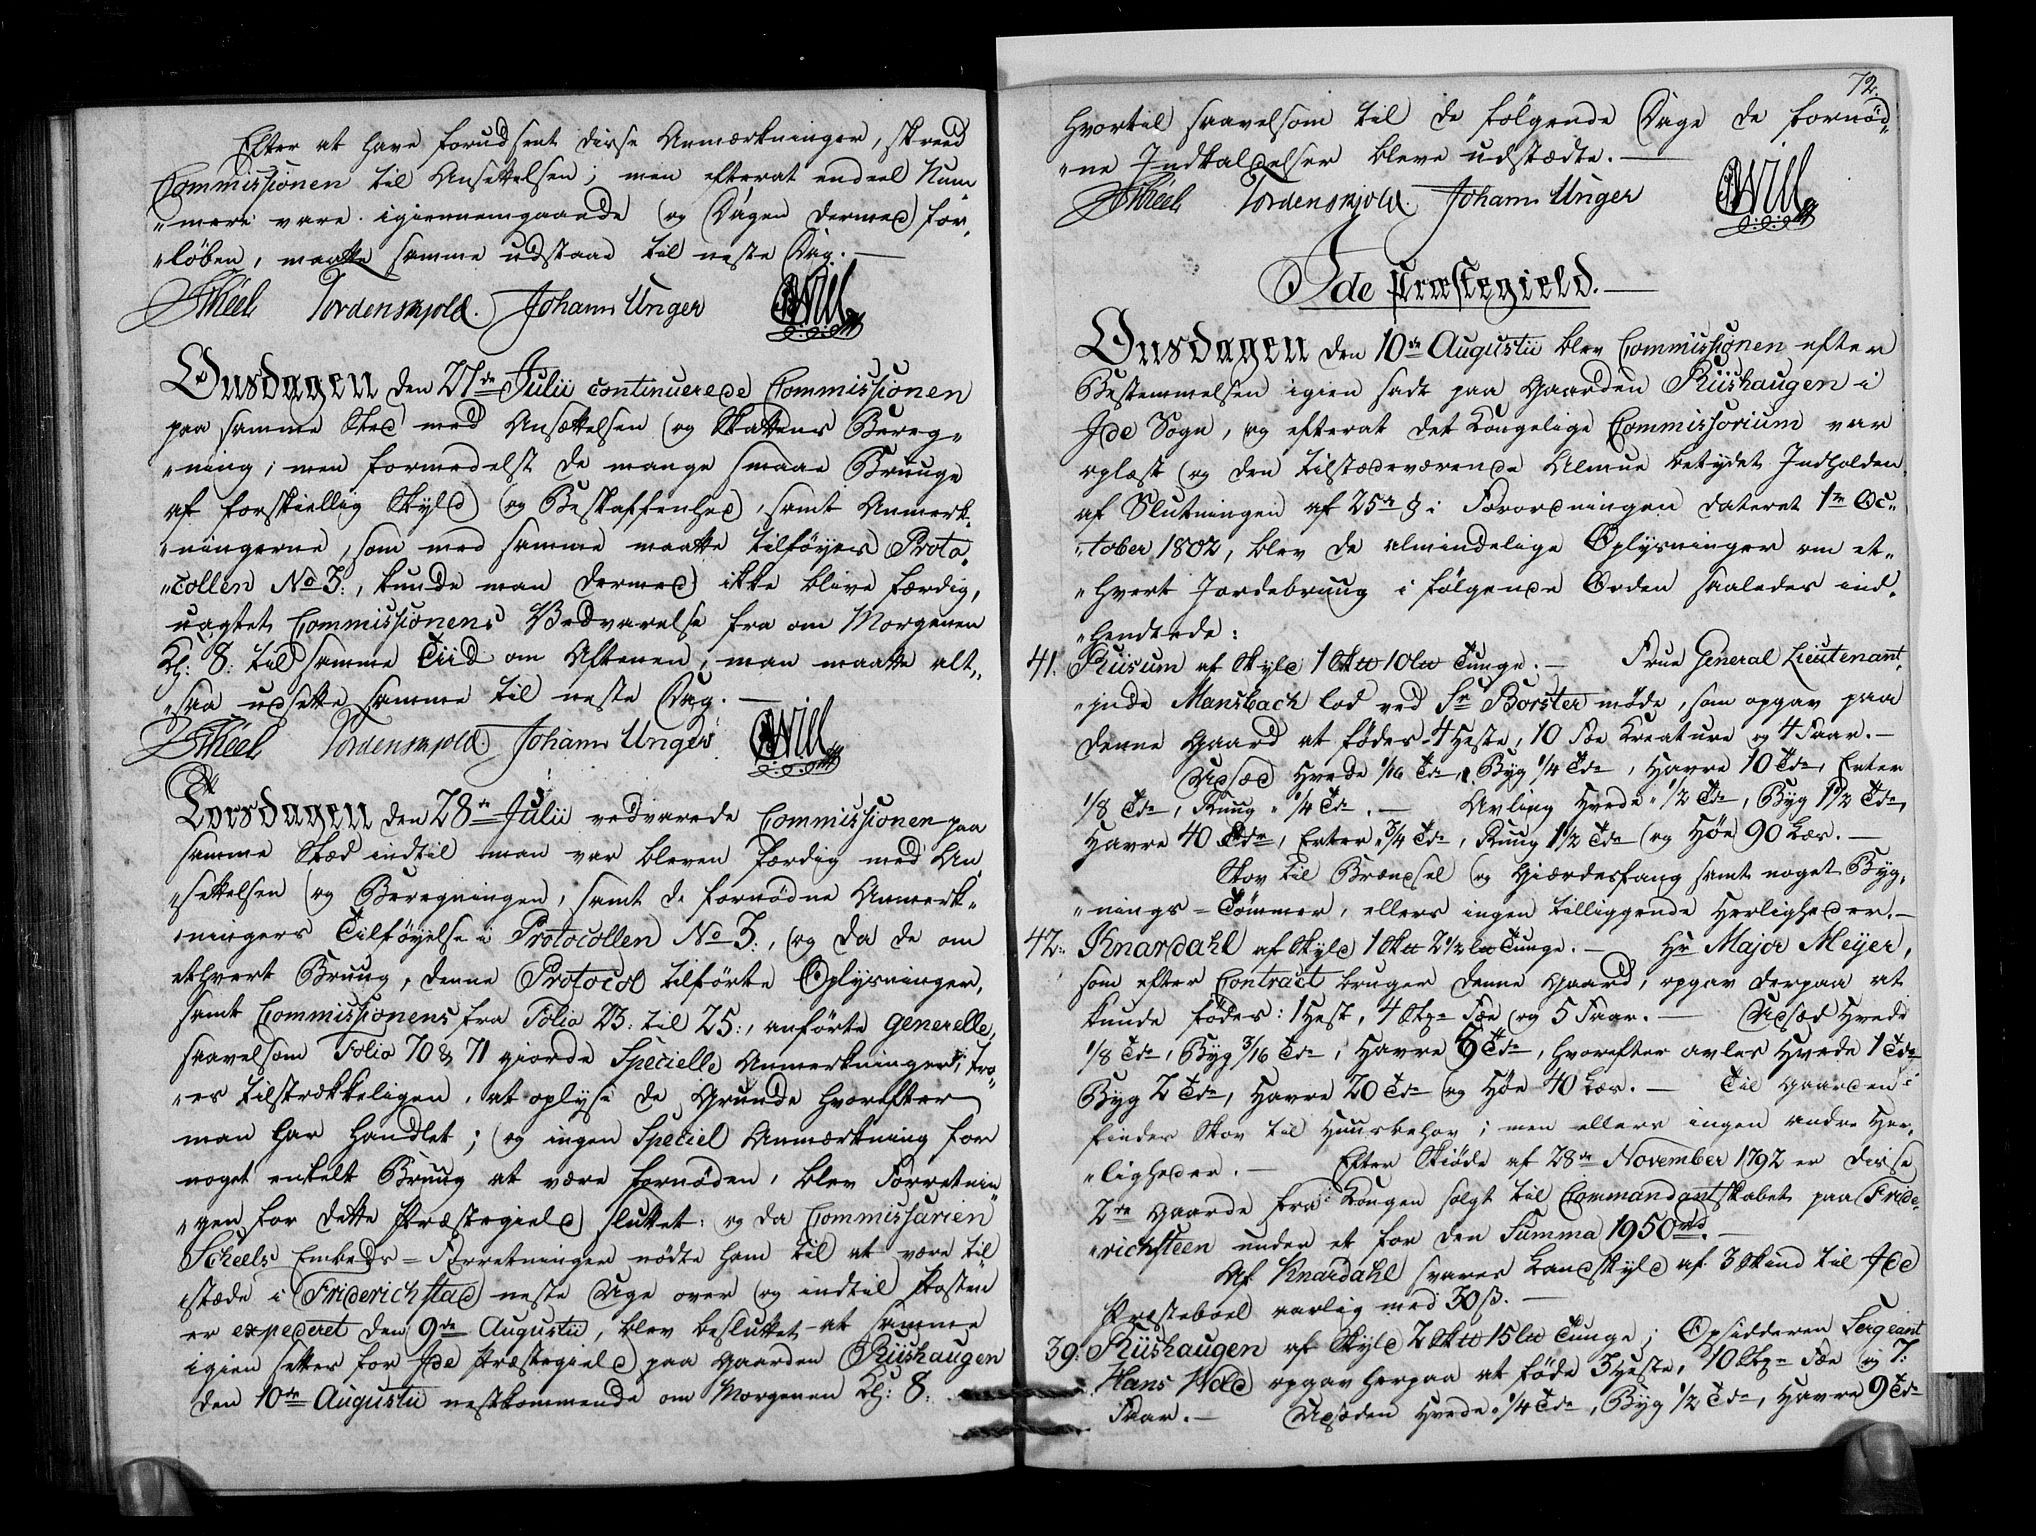 Efter at have forudsent disse Anmærkninger, skreed
Commissionen til Ansettelsen; men efterat endeel Num-
"mere vare igiennemgaaede og Dagen dermed for-
"löben, maatte samme udstaae til neste Dag. —
Scheel Tordenskjold. Johan Unger Will
Onsdagen den 27de Julii continuerede Commissionen
paa samme Sted med Ansættelsen og Skattens Bereg-
"ning; men formedelst de mange smaae Bruuge
af forskiellig Skyld og Beskaffenhed, samt Anmerk-
"ningerne, som med samme maatte tilföyes Proto-
"collen No 3:, kunde man dermed ikke blive færdig,
uagtet Commissionens Vedvarelse fra om Morgenen
Kl: 8: til samme Tiid om Aftenen, man maatte alt-
"saa udsette samme til neste Dag. —
Scheel Tordenskjold. Johan Unger Will
Torsdagen den 28de Julii vedvarede Commissionen paa
samme Stæd indtil man var bleven færdig med An-
"settelsen og Beregningen, samt de fornödne Anmerk-
"ningers Tilföyelse i Protocollen No 3:, og da de om
ethvert Bruug, denne Protocol tilförte Oplysninger,
samt Commissionens fra Folio 23: til 25:, anförte generelle,
saavelsom Folio 70 & 71 giorde Specielle Anmerkninger, tro-
"es tilstrækkeligen, at oplyse de Grunde hvorefter
man har handlet; og ingen Speciel Anmærkning for
noget enkelt Bruug at være fornöden, blev Forretnin-
"gen for dette Præstegield sluttet: og da Commissairien
Scheels Embeds-Forretninger nödte ham til at være til-
stæde i Friderichstad neste Uge over og indtil Posten
er expederet den 9de Augustii, blev besluttet at samme
igien settes for Ide Præstegield paa Gaarden Riishaugen
den 10de Augustii nestkommende om Morgenen Kl: 8:
72.
hvortil saavelsom til de fölgende Dage de fornöd-
"ne Indkaldelser bleve udstædte. —
Scheel Tordenskjold. Johan Unger Will
Ide Præstegield. —
Onsdagen den 10de Augustii blev Commissionen efter
Bestemmelsen igien sadt paa Gaarden Riishaugen i
Ide Sogn, og efterat det Kongelige Commissorium var
oplæst og den tilstædeværende Almue betydet Indholden
af Slutningen af 25de § i Forordningen dateret 1te Oc-
"tober 1802, blev de almindelige Oplysninger om et-
"hvert Jordebruug i fölgende Orden saaledes ind-
"hendtede:
41. Riisum af Skyld 1 Sk℔ 10 L℔ Tunge. — Frue General Lieutenant-
"inde Mansbach lod ved Sr Borster möde, som opgav paa
denne Gaard at födes 4 Heste, 10 Fæe Kreature og 4 Faar. —
Udsæd Hvede 1/16 Tde, Byg 1/4 Tde, Havre 10 Tde, Erter
1/8 Tde, Ruug 1/4 Tde. — Avling Hvede 1/2 Tde, Byg 1 1/2 Tde,
Havre 40 Tdr, Erter 3/4 Tde, Ruug 1 1/2 Tde og Höe 90 Læs. —
Skov til Brændsel og Gierdesfang samt noget Byg-
"nings-Tömmer, ellers ingen tilliggende Herligheder. —
42. Knardahl af Skyld 1 Sk℔ 2 1/2 L℔ Tunge. — Hr Major Meÿer,
som efter Contract bruger denne Gaard, opgav derpaa at
kunde födes: 1 Hest, 4 Stkr Fæe og 5 Faar. — Udsæd Hvede
1/8 Tde, Byg 3/16 Tde, Havre 6 Tdr, hvorefter avles Hvede 1 Tde
Byg 2 Tde, Havre 20 Tde og Höe 40 Læs. — Til Gaarden
findes Skov til Huusbehov; men ellers ingen andre Her-
"ligheder. — Efter Skiöde af 28de November 1792 er disse
2de Gaarde fra Kongen solgt til Commandantskabet paa Fride-
"richsteen under et for den Summa 1950 rd. —
Af Knardahl svares Landskyld af 3 Skind til Ide
Præsteboel aarlig med 30 ß. —
39. Riishaugen af Skyld 2 Sk℔ 15 L℔ Tunge; Opsidderen Sergeant
Hans Wold opgav herpaa at föde 3 Heste, 10 Stkr Fæe og 7
Faar. — Udsæden Hvede 1/4 Tde, Byg 1/2 Tde, Havre 9 Tde